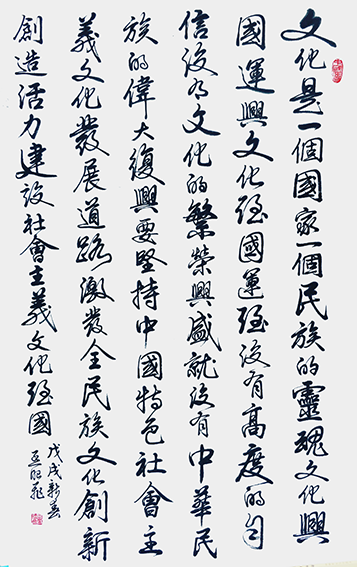 文化是一個國家一個民族的靈魂文化興
國運興文化强國運强沒有高度的自
信沒有文化的繁榮興盛就沒有中華民
族的偉大復興要堅持中國特色社會主
義文化發展道路激發全民族文化創新
創造活力建設社會主義文化强國
戊戌新春